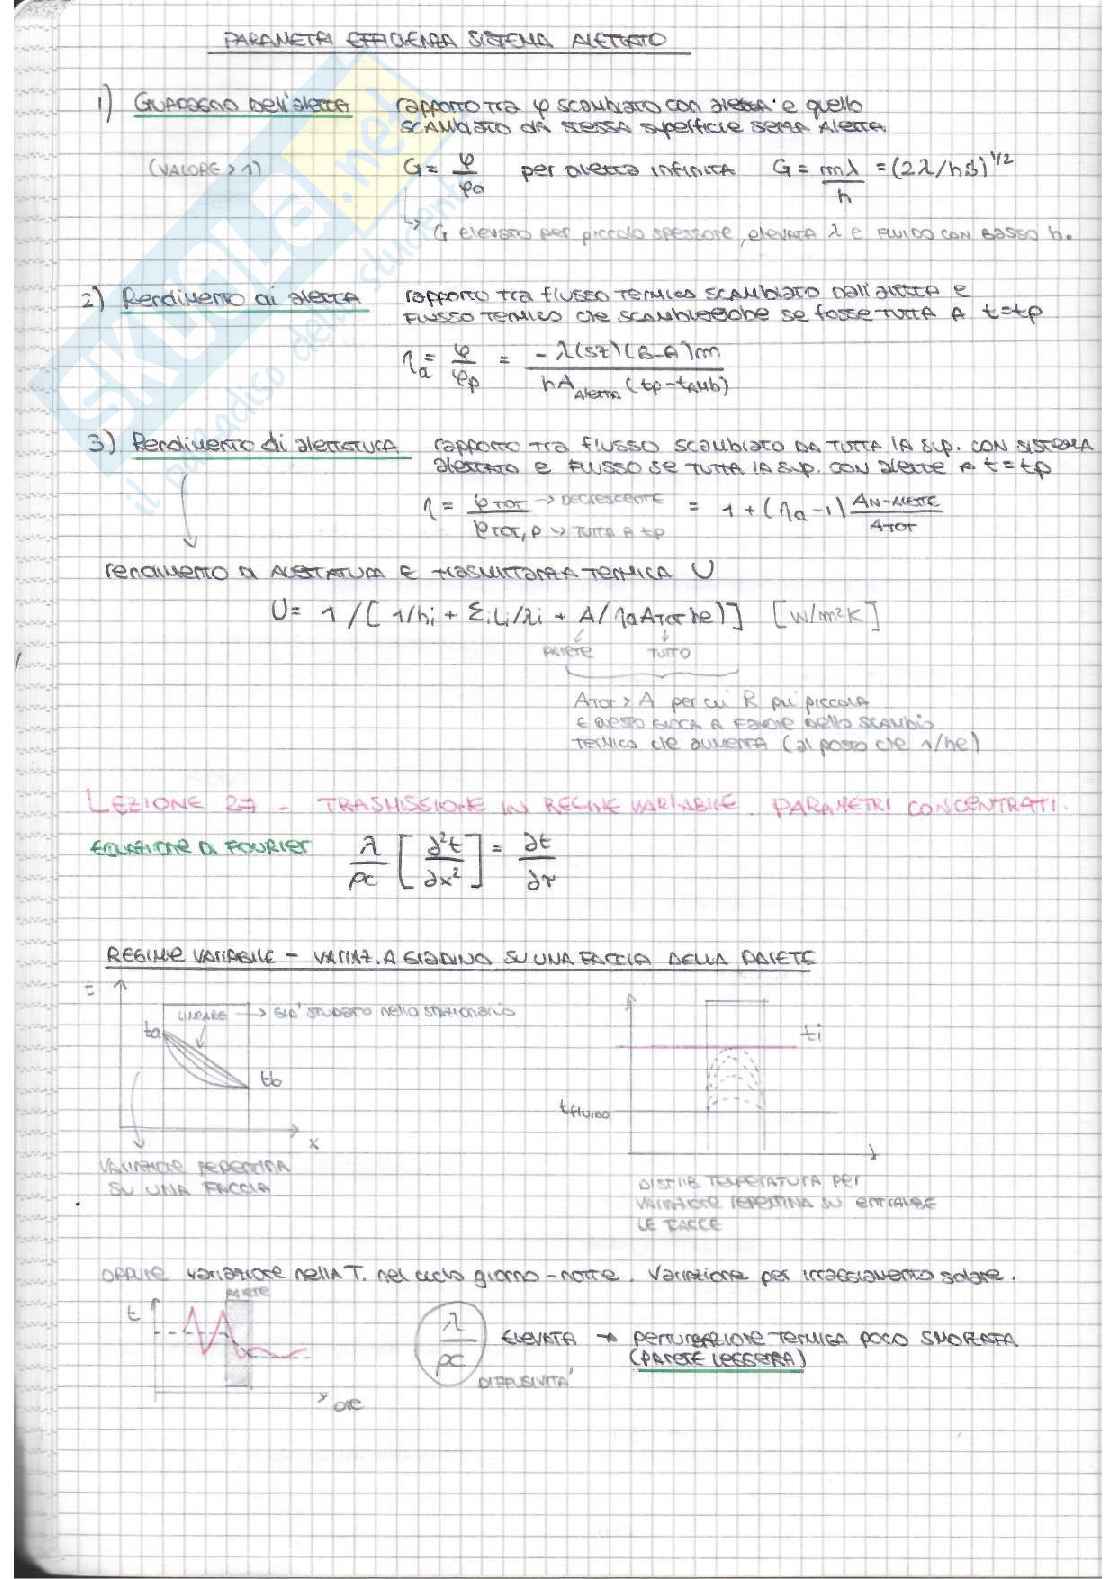 PARAMETRI EFFICIENZA SISTEMA ALETTATO
1) GUADAGNO Dell'aletta rapporto tra φ scambiato con aletta e quello
SCAMBIATO da stessa superficie senza Aletta
(VALORE > 1) G = φ/φo per aletta infinita G = mλ/h = (2λ/hs)^1/2
↳ G elevato per piccolo spessore, elevata λ e FLUIDO CON BASSO h.
2) Rendimento di aletta rapporto tra flusso termico scambiato dall'aletta e
FLUSSO TERMICO che SCAMBIEREBBE se fosse TUTTA A t=tp
ηa = φ/φp = -λ(sz)(B-A)m / hA Aletta (tp - tamb)
3) Rendimento di alettatura rapporto tra flusso scambiato DA TUTTA LA SUP. CON SISTEMA
alettato e FLUSSO SE TUTTA LA SUP. CON alette A t=tp
η = φTOT → DECRESCENTE / φTOT,P → TUTTA A tp = 1 + (ηa - 1) AN-ALETTE / ATOT
rendimento di ALETTATURA E trasmittanza TERMICA U
U = 1 / [ 1/hi + Σi Li/λi + A / ηa ATOT he) ] [W/m²K]
PARETE TUTTO
ATOT > A per cui R più piccola
E questo gioca A FAVORE dello SCAMBIO
TERMICO che aumenta (al posto che 1/he)
LEZIONE 27 - TRASMISSIONE IN REGIME VARIABILE. PARAMETRI CONCENTRATI.
EQUAZIONE DI FOURIER λ/ρc [∂²t/∂x²] = ∂t/∂τ
REGIME VARIABILE - VARIAZ. A GRADINO SU UNA FACCIA DELLA PARETE
LINEARE → GIA' STUDIATO nello stazionario
ta
tb
x
VARIAZIONE REPENTINA
SU UNA FACCIA
ti
tfluido
DISTRIB TEMPERATURA PER
VARIAZIONE REPENTINA SU ENTRAMBE
LE FACCE
OPPURE variazione nella T. nel ciclo giorno-notte. Variazione per irraggiamento solare.
PARETE
t
ore
λ/ρc ELEVATA → PERTURBAZIONE TERMICA POCO SMORZATA
(PARETE LEGGERA)
DIFFUSIVITA'
SKUOLA.net
il paradiso dello studente